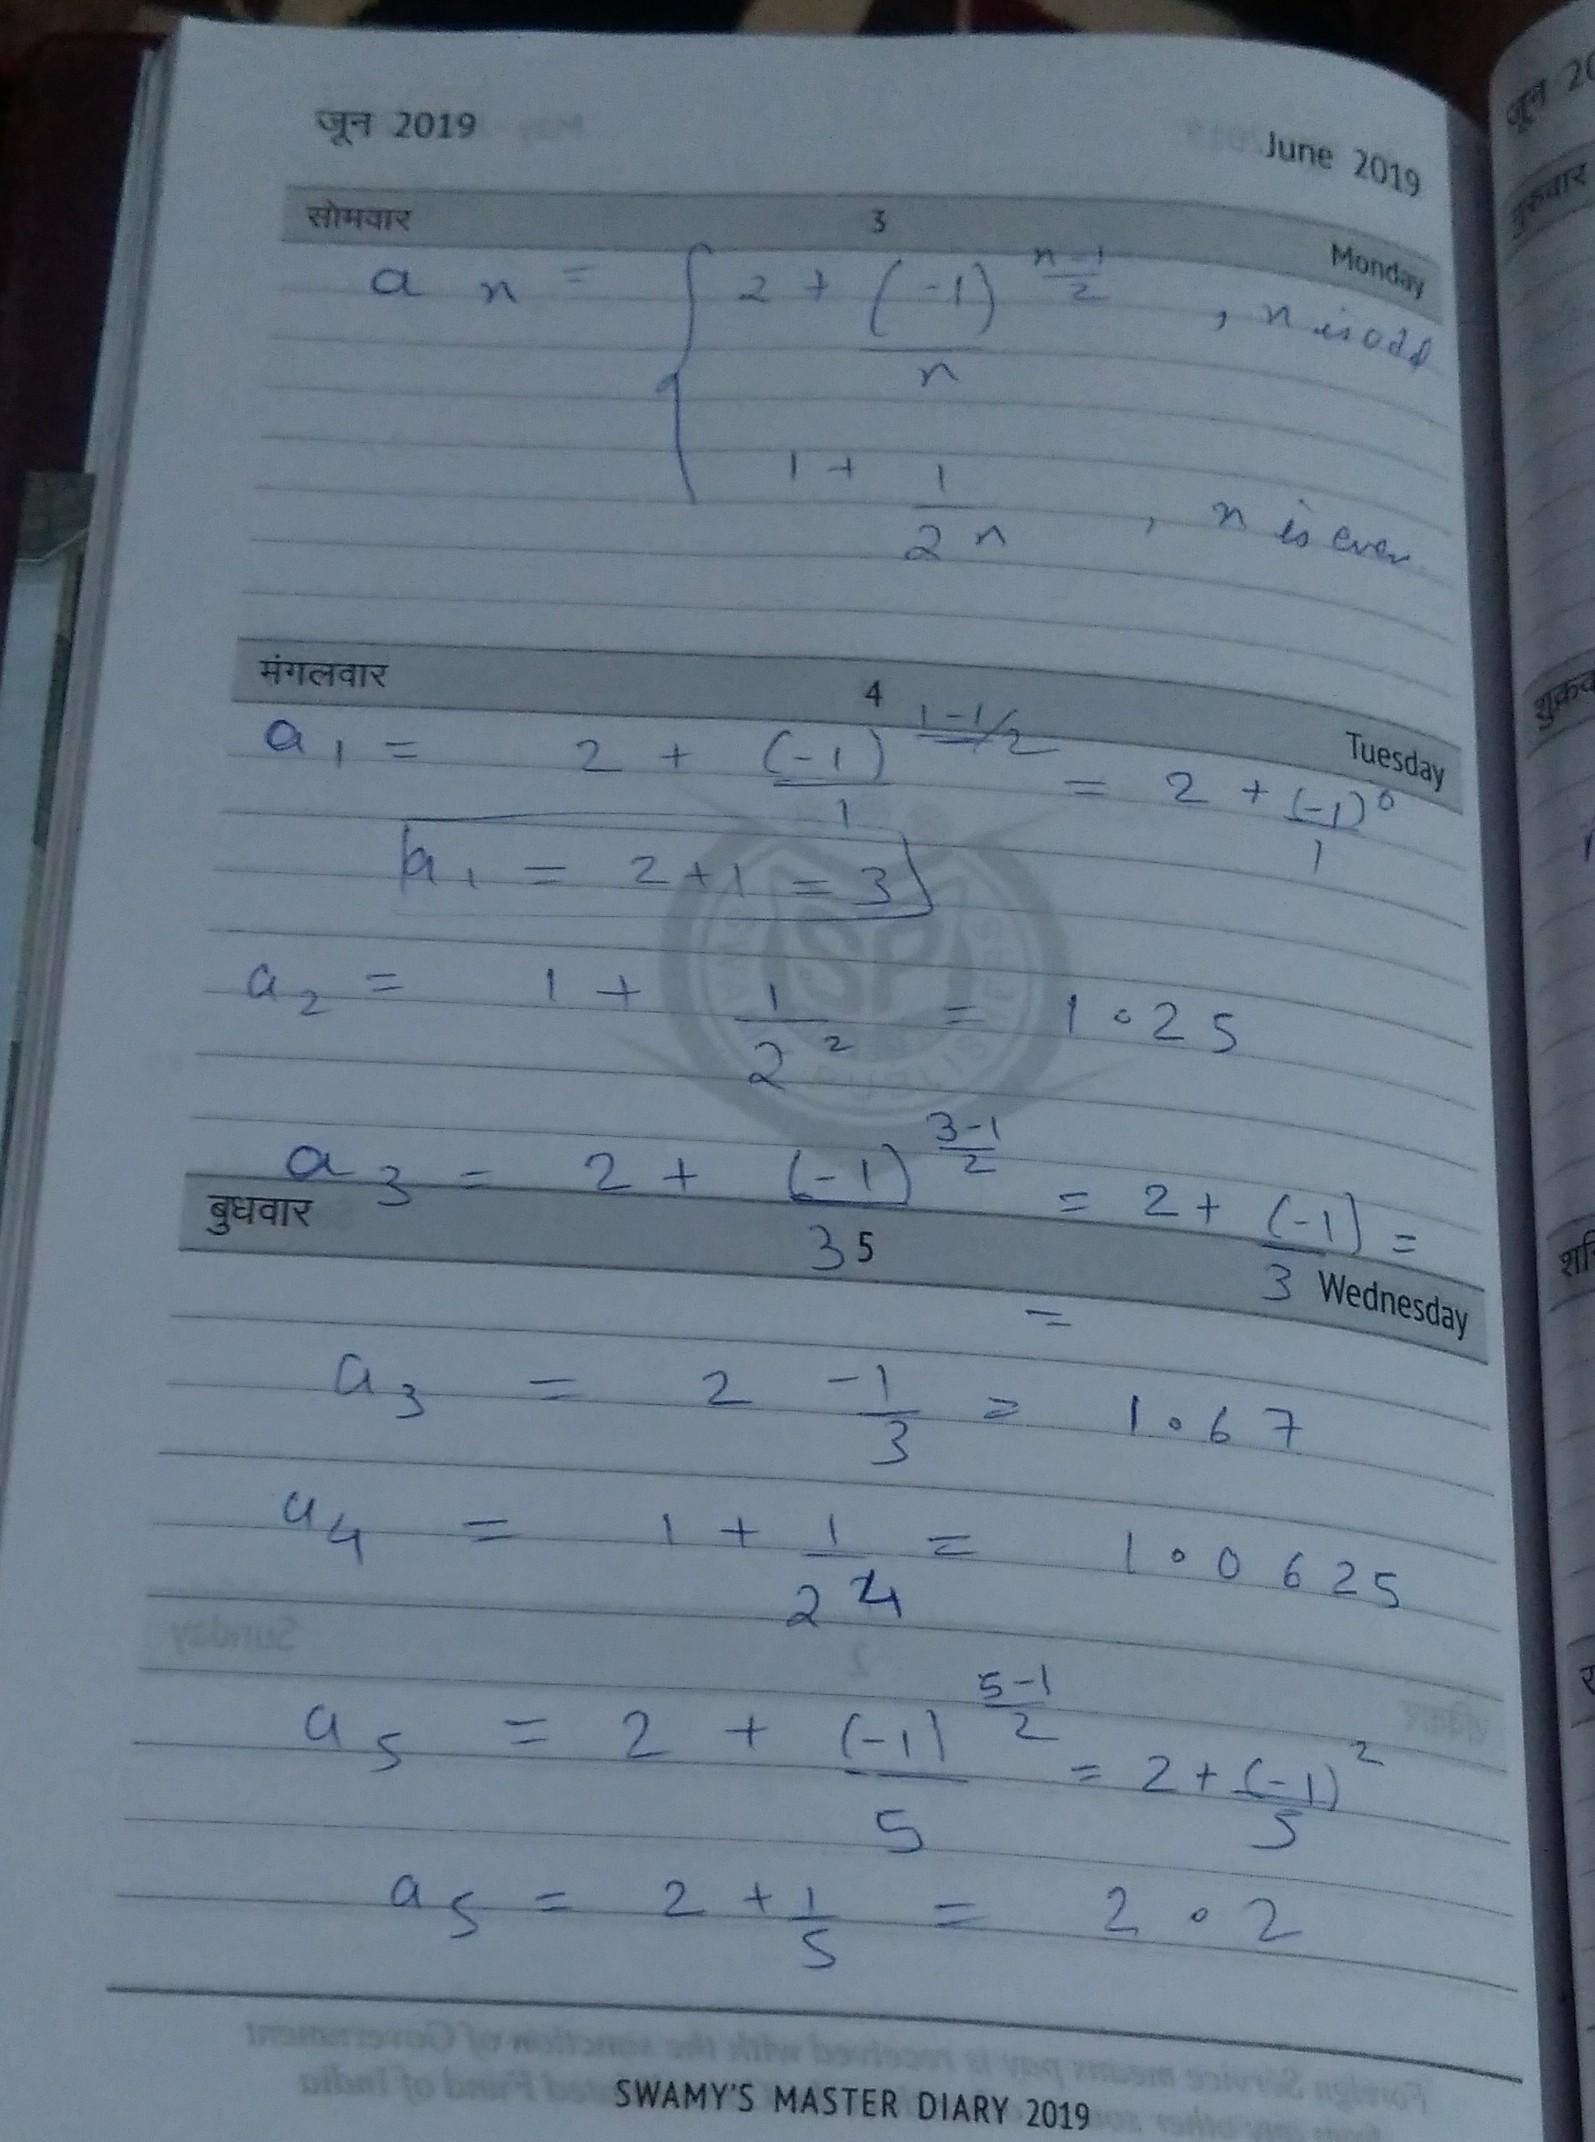 जून 2019 June 2019
सोमवार 3 Monday
a n = { 2 + (-1)^(n-1)/2 / n , n is odd
1 + 1/2^n , n is even
मंगलवार 4 Tuesday
a1 = 2 + (-1)^1-1/2 / 1 = 2 + (-1)^0 / 1
a1 = 2+1 = 3
a2 = 1 + 1/2^2 = 1.25
a3 = 2 + (-1)^(3-1)/2 / 3 = 2 + (-1)/3 =
बुधवार 5 Wednesday
=
a3 = 2 -1/3 = 1.67
a4 = 1 + 1/2^4 = 1.0625
a5 = 2 + (-1)^(5-1)/2 / 5 = 2 + (-1)^2 / 5
a5 = 2 + 1/5 = 2.2
SWAMY'S MASTER DIARY 2019
जून 20
गुरुवार